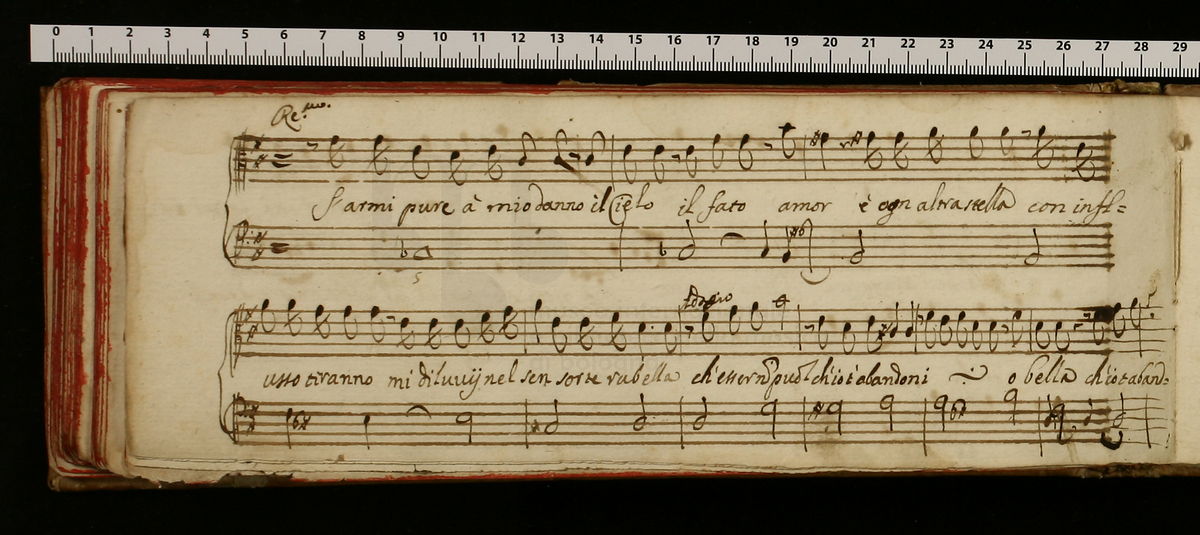 0 1 2 3 4 5 6 7 8 9 10 11 12 13 14 15 16 17 18 19 20 21 22 23 24 25 26 27 28 29
Re.mo.
armi pure à mio danno il Cielo il fato amor è ogn altra stella con infl=
Adagio
usso tiranno mi diluvij nel sen sorte rubella ch'esser nō puol ch'io t'abandoni o bella ch'io t'aband=